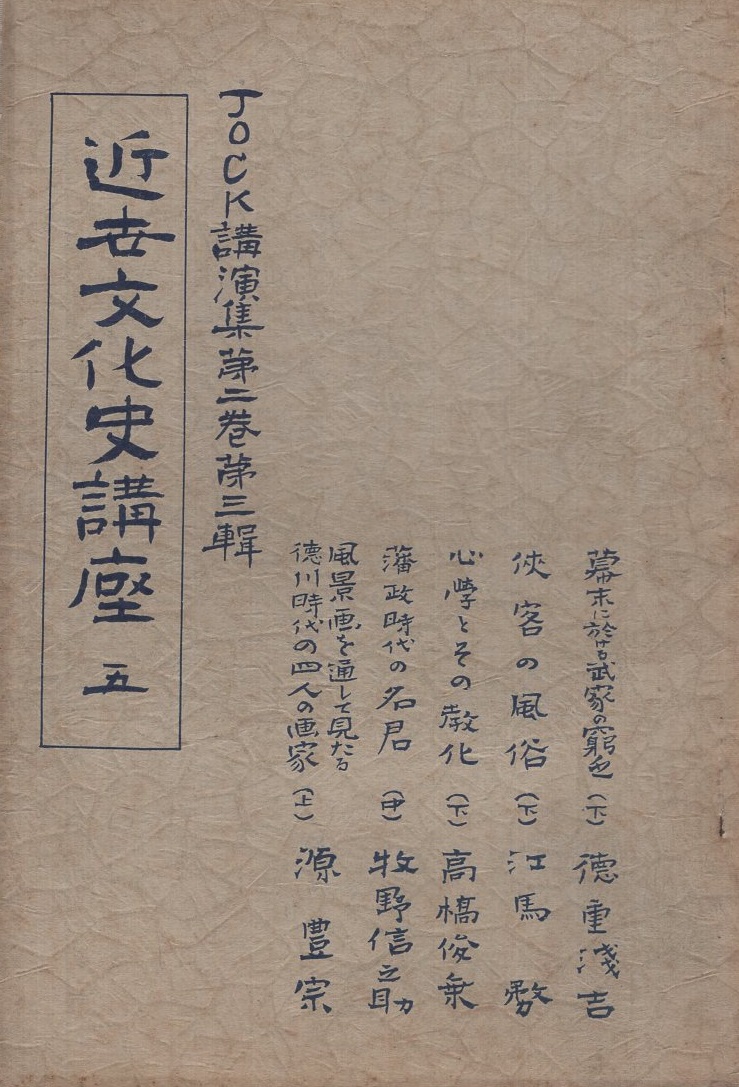 幕末に於ける武家の窮乏（下）　徳重浅吉
侠客の風俗（下）　江馬務
心學とその教化（下）　高橋俊乗
藩政時代の名君（中）　牧野信之助
風景画を通して見たる
徳川時代の四人の画家（上）　源豊宗
JOCK講演集第二巻第三輯
近世文化史講座　五